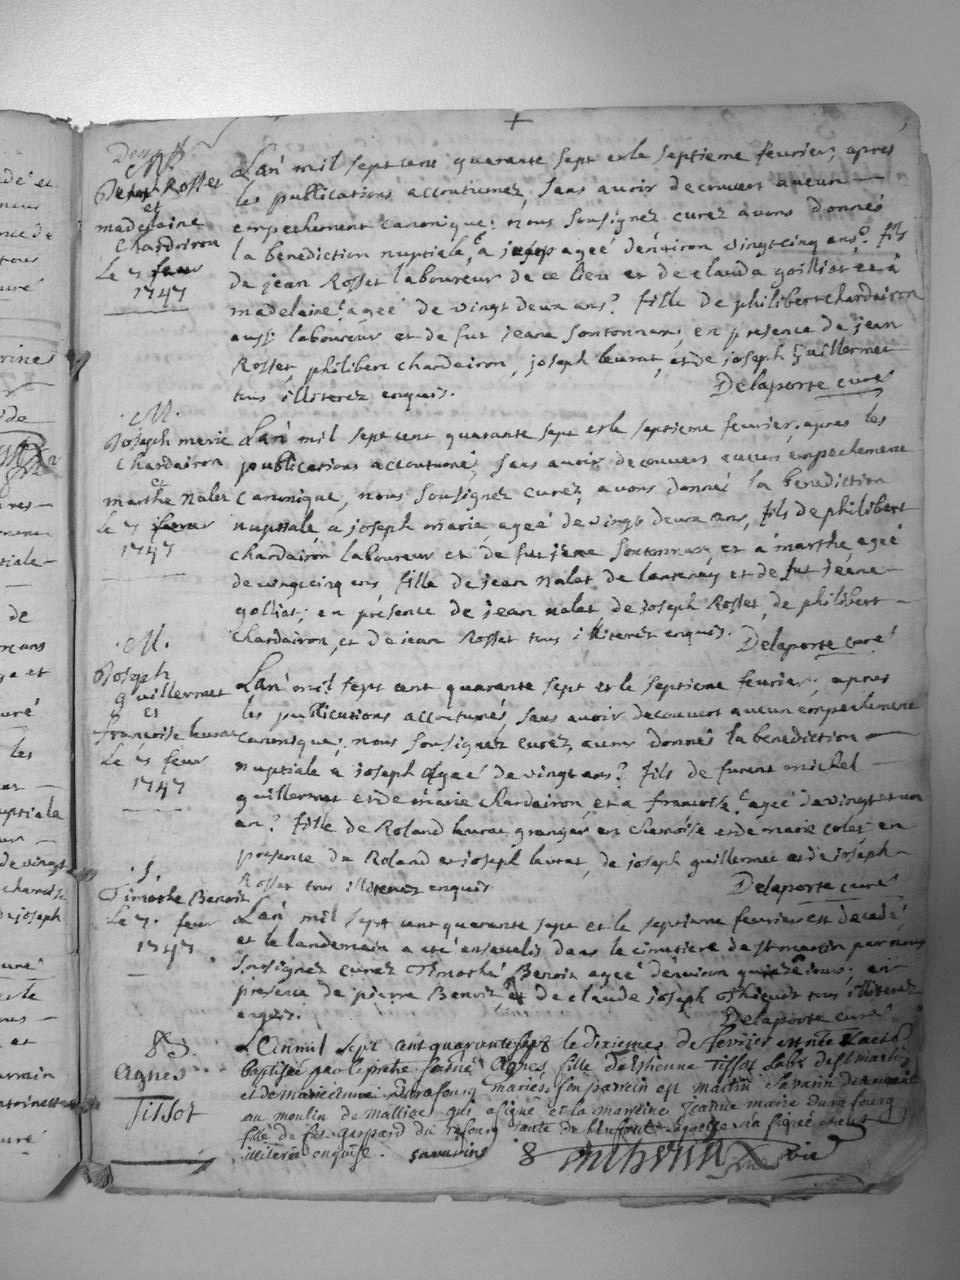 M.
Rosset
et
madelaine
Chardeiron
Le 7 feur
1747
Lan mil sept cent quarante sept et le septieme feurier, apres
les publications accoutumez, sans auoir decouuers aucun
empechement canonique; nous soussignez curez auons donnés
la benediction nuptiale, a agée denuiron vingt cinq ans, fils
de jean Rosset laboureur de ce lieu et de clauda golliat et a
madelaine agée de vingt deux ans, fille de philibert chardairon
aussi laboureur et de fut jeane fontonnax, en presence de jean
Rosset, philibert chardeiron, joseph leurat, et de joseph guillermet
tous illiterez enquis. Delaporte curé
M.
Joseph marie
Chardairon
et
marthe nalet
Le 7 feur
1747
Lan mil sept cent quarante sept et le septieme feurier, apres les
publications accoutumé, sans auoir decouuers aucun empechement
Canonique, nous soussignez curez, auons donné la benediction
nuptiale a joseph marie, ageé de vingt deux ans, fils de philibert
chardairon laboureur et de fut jeane fontonnax et a marthe ageé
de vingt cinq ans fille de jean nalet de et de fut jeane
golliat; en présence de jean nalet de joseph Rosset, de philibert
chardairon, et de jean Rosset tous illiterez enquis. Delaporte curé
M.
Joseph
guillermet
et
francoise leurat
Le 7 feur
1747
Lan mil sept cent quarante sept et le septieme feurier, apres
les publications accoutumés, sans auoir decouuert aucun empechement
canonique; nous soussignez curez, auons donnés la benediction
nuptiale a joseph ageé de vingt ans, fils de michel
guillermet et de marie chardairon, et a francoise ageé de vingt et un
an, fille de Roland leurat, granger en et de marie colet, en
presence de Roland et joseph leurat, de joseph guillermet et de joseph
Rosset tous illiterez enquis Delaporte curé
Timothe Benoit
Le 7 feur
1747
Lan mil sept cent quarante sept et le septieme feurier est decedé
et le landemain a eté enseuelis dans le cimetiere de st martin par nous
soussignez curez Timothé Benoit ageé denuiron quinze jours; en
presence de pierre Benoit et de claude joseph tous illiterez
enquis. Delaporte curé
B.
Agnes
Tissot
Lan mil sept cent quarante sept le dixieme de fevrier est née et a eté
baptisée par le pretre Agnes fille Tissot de st martin
et de marie mariés, son parrein est martin savarin
au moulin de qui a signé et la marreine jeanne marie durafourg
fille de feu gaspard durafourg
illiterée enquise. savarin